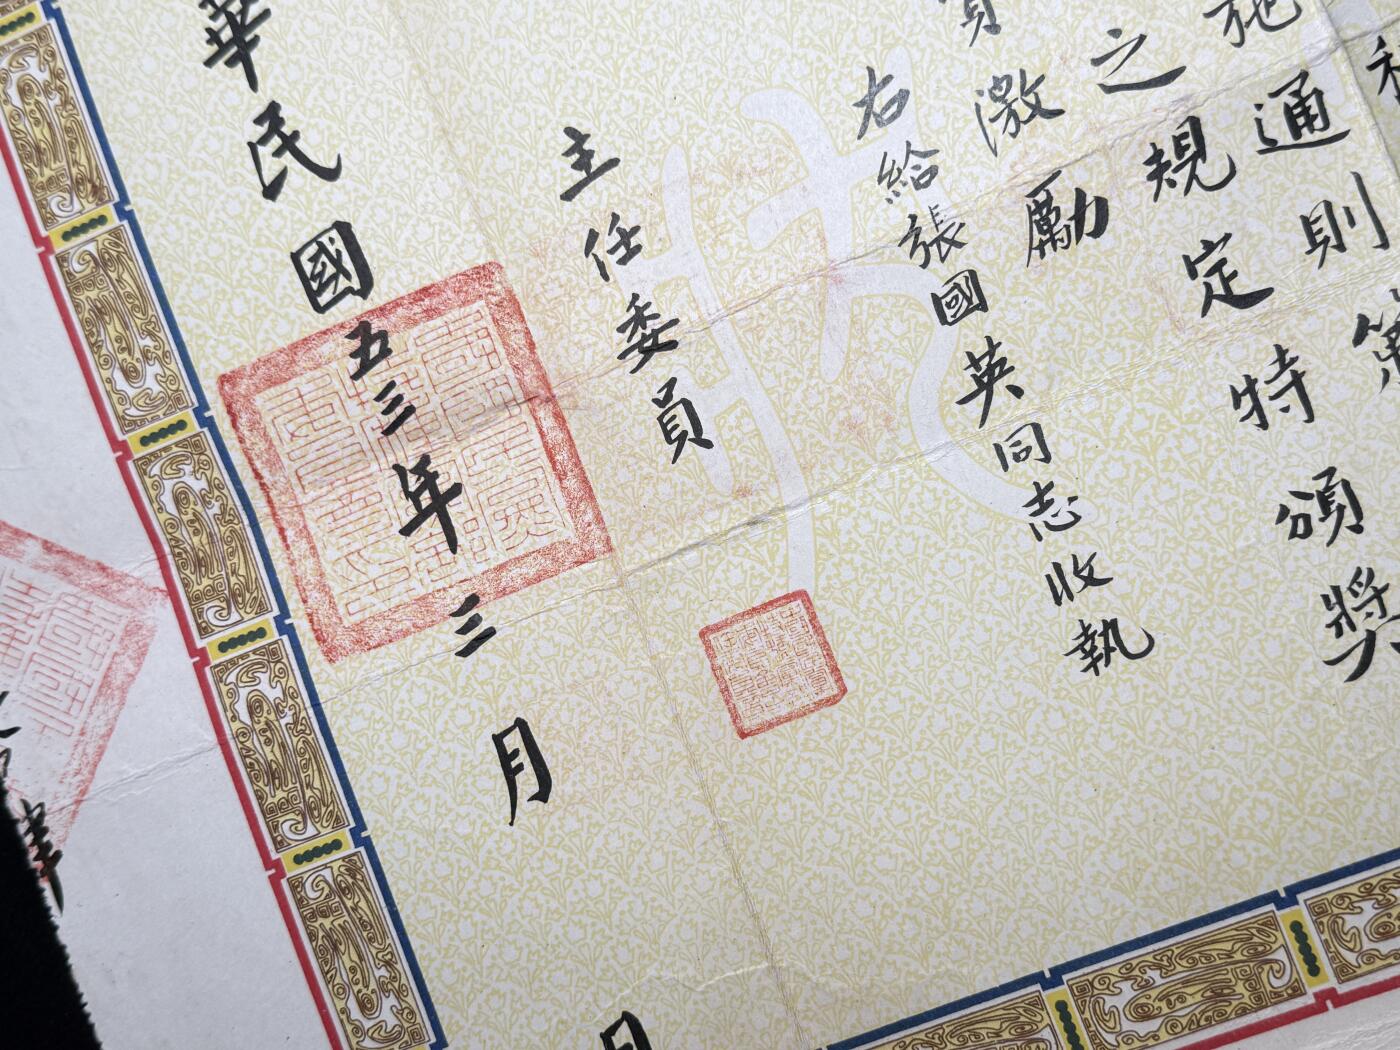 施通則第
之規定特頒獎
資激勵
右給張國英同志收執
主任委員
華民國五三年三月日